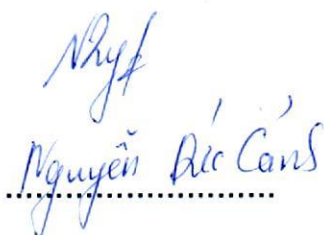 Nguyễn Đức Cảnh